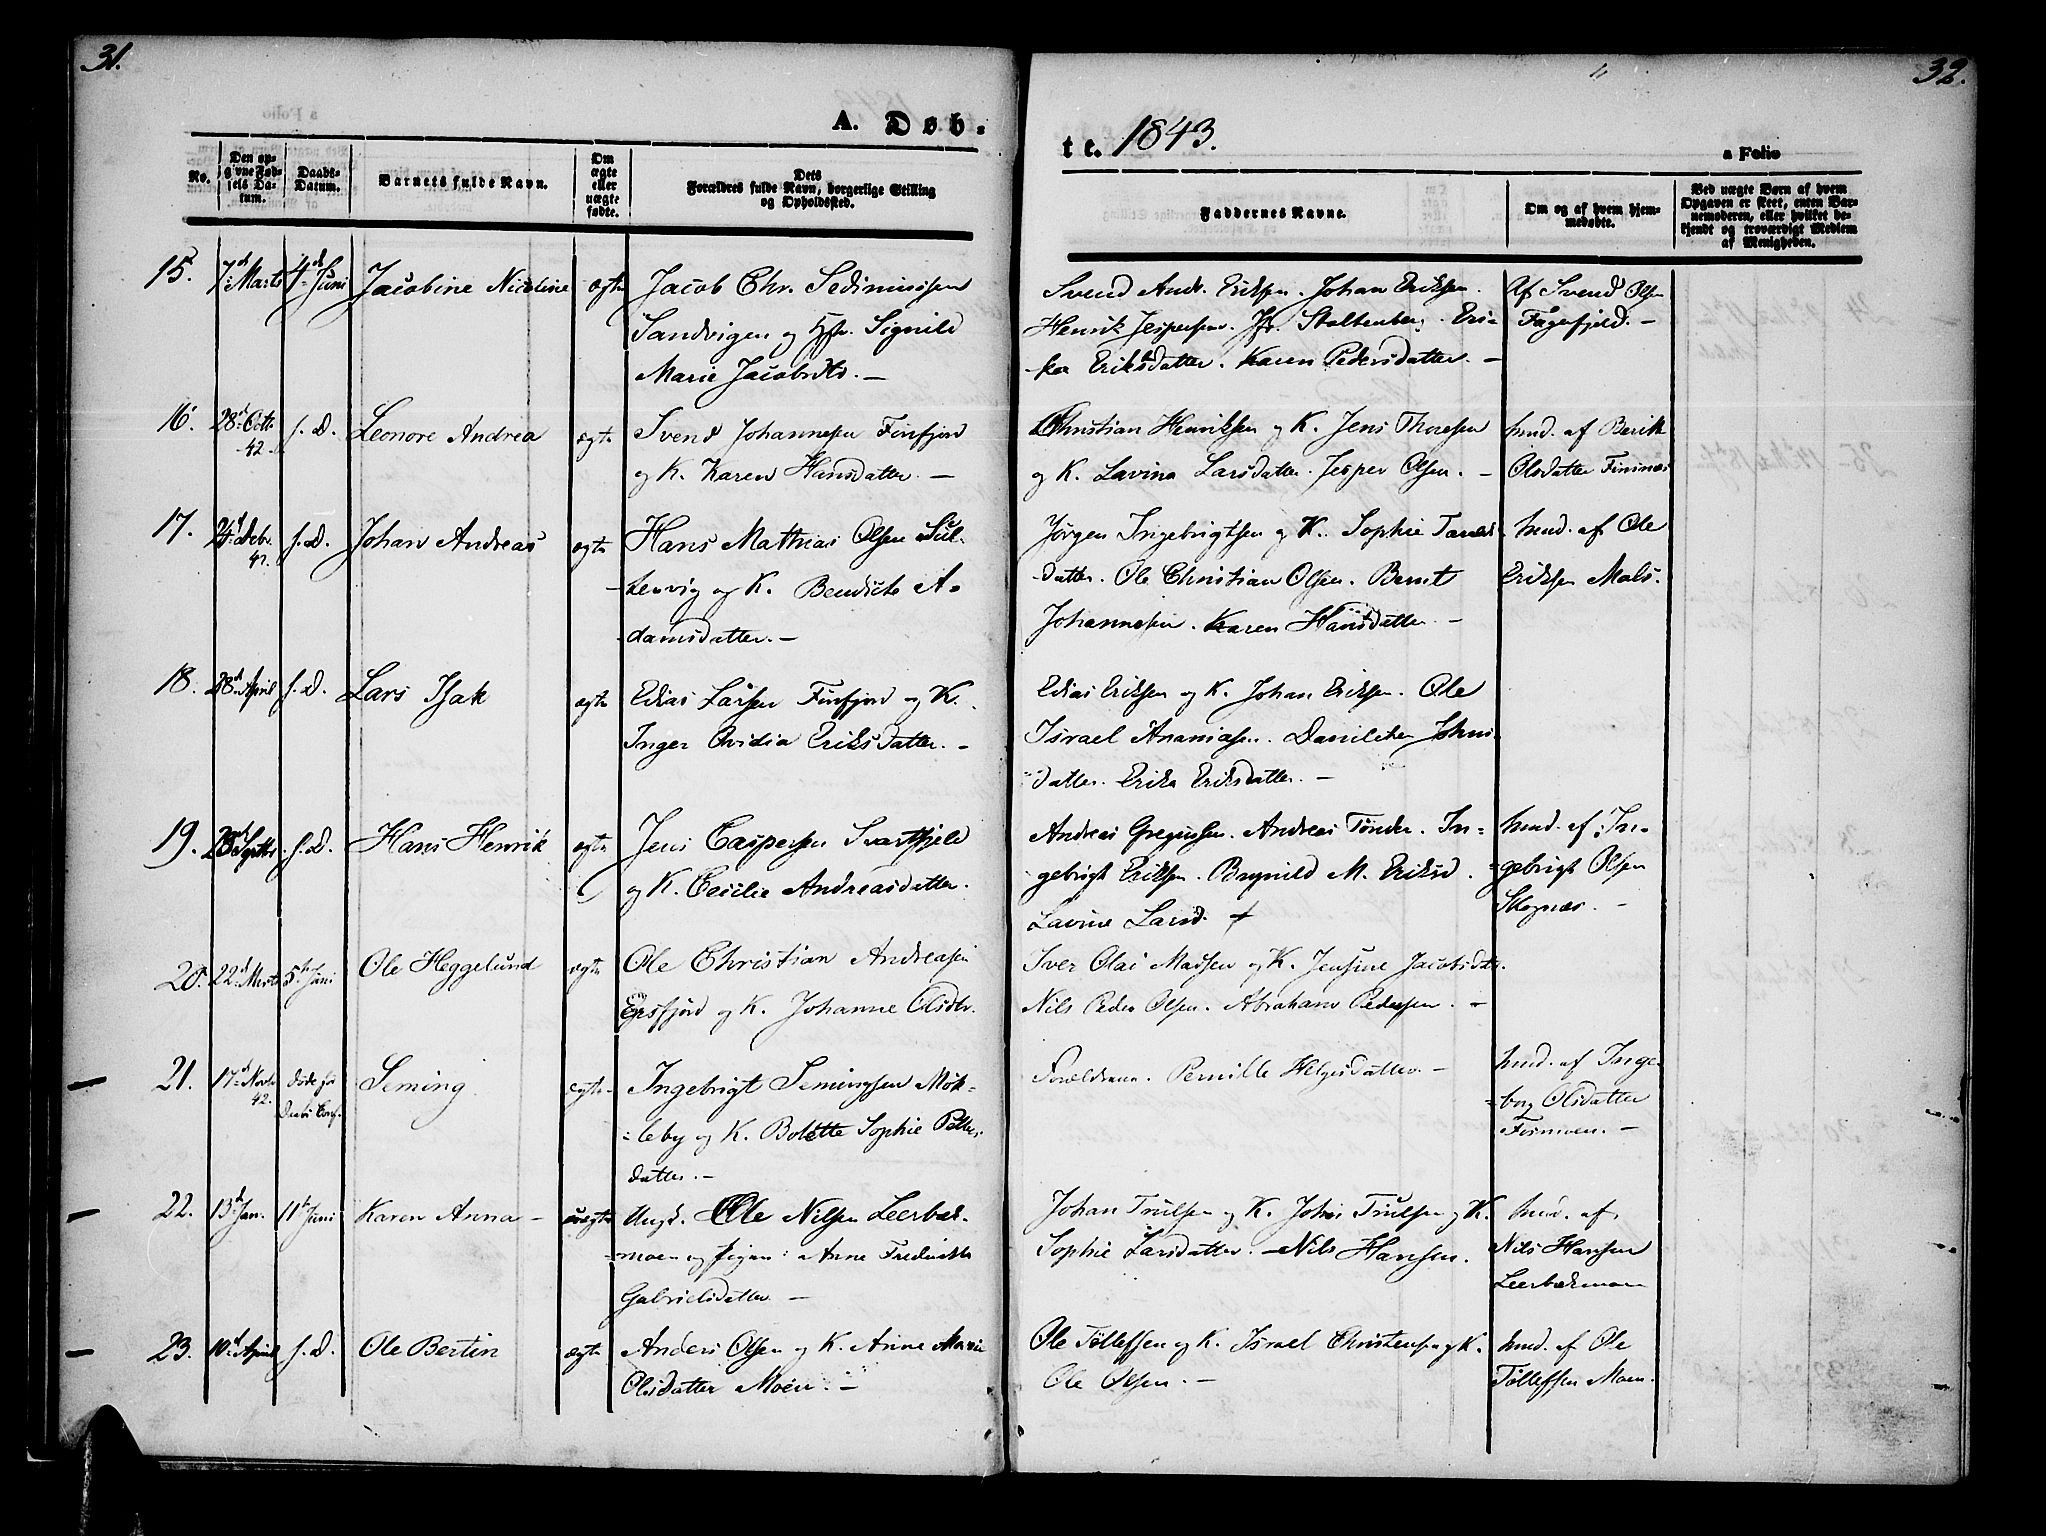 31.
A. Døb-
No.
Den op-
givne Fød-
sels Da-
tum.
Daabs-
Datum.
Barnets fulde Navn.
Om
ægte
eller
uægte
fødte.
Dets
Forældres fulde Navn, borgerlige Stilling
og Opholdssted.
15. 7d Marts 4d Juni Jacobine Nicoline ægte Jacob Chr.
Sandvigen og Hstr. Signild
Marie Jacobsdtr. —
16. 28d Octb. 42. s. D. Leonore Andrea ægte Svend Johannesen Finfjord
og K. Karen Hansdatter. —
17. 42. s. D. Johan Andreas ægte Hans Mathias Olsen Sul-
tenvig og K. Bendicte A-
damsdatter. —
18. 28d April s. D. Lars Isak ægte Edias Larsen Finfjord og K.
Inger Ovidia Eriksdatter. —
19. s. D. Hans Henrik ægte Jens Caspersen Svartfjeld
og K. Cecilie Andreasdatter.
20. 22d Marts 5te Juni Ole Heggelund ægte Ole Christian Andreasen
Ersfjord og K. Johanne Olsdtr.
21. 17d Novb. 42. døbt Seming ægte Ingebrigt Semingsen Møk-
leby og K. Bolette Sophie Peders-
datter. —
22. 13d Jan. 11te Juni Karen Anna — uægte Ungk. Ole Nilsen Leerbæk-
moen og Pigen: Anne Fredrikke
Gabrielsdatter —
23. 10d April s. D. Ole Bertin ægte Anders Olsen og K. Anne Marie
Olsdatter Moen. —
32.
te. 1843.
a Folio
Faddernes Navne.
Om og af hvem hjem-
medøbte.
Ved uægte Børn af hvem
Opgaven er skeet, enten Bar-
nemoderen, eller hvilket be-
kjendt og troværdigt Medlem
af Menigheden.
Svend Andr. Eriksen. Johan Eriksen. Af Svend Olsen
Henrik Jespersen. Jfr. Stoltenberg. Eri- Fagerfjeld. —
ka Eriksdatter. Karen Pedersdatter. —
Christian Henriksen og K. Jens Thoresen hmd. af Berit
og K. Lavina Larsdatter. Jesper Olsen. — Olsdatter Finnæs
Jørgen Ingebrigtsen og K. Sophie hmd. af Ole
datter. Ole Christian Olsen. Bernt Eriksen Mals.
Johannesen. Karen Hansdatter. —
Edias Eriksen og K. Johan Eriksen. Ole
Israel Ananiasen. Johns-
datter. Erika Eriksdatter. —
Andreas Gregusen. Andreas Tønder. In- hmd. af In-
gebrigt Eriksen. Ragnild M. Eriksd. gebrigt Olsen
Lavine Larsd. Skognæs. —
Iver Olai Madsen og K. Jensine Jacobsdatr.
Nils Peder Olsen. Abraham Pedersen. —
Forældrene. Pernille Helgesdatter — hmd. af Inge-
borg Olsdatter
Fosmoen. —
Johan Trulsen og K. Johs Trulsen og K. hmd. af
Sophie Larsdatter. — Nils Hansen. Nils Hansen
Leerbækmoen
Ole Tølleffsen og K. Israel Christensen og K. hmd. af Ole
Ole Olsen. — Tølleffsen Moen.